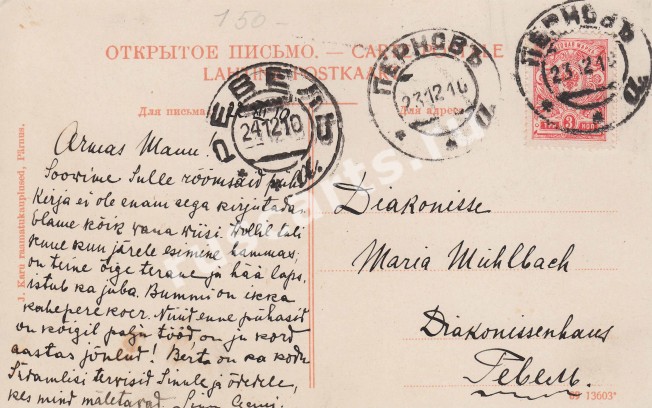 150-
ОТКРЫТОЕ ПИСЬМО. — CARTE POSTALE
LAHTINE POSTKAART
Для письма
Для адреса
ПЕРНОВЪ
23.12.10
ПЕРНОВЪ
23.12.10
РЕВЕЛЬ
24.12.10
3 КОП
J. Karu raamatukauplused, Pärnus.
Armas Mann!
Soovime Sulle rõõmsaid pühi
Kirja ei ole enam aega kirjutada,
elame kõik vana viisi. tuli
kuue kuu järele esimene hammas,
on teine õige terane ja hää laps,
istub ka juba. Bummi on ikka
kahepere koer. Nüüd enne pühasid
on kõigil palju tööd on ju kord
aastas jõulud! Berta on ka kodu
Südamlisi tervisid Sinule ja õdedele,
kes mind mäletavad.
Diakonisse
Maria Mühlbach
Diakonissenhaus
Ревель.
13603*